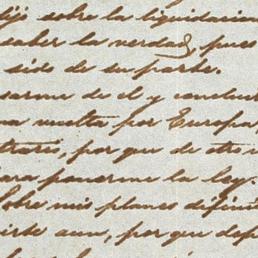 dijo sobre la liquidacion
saber la verdad, pues
sido de su parte.
sarme de el y conclui
na vuelta por Europa,
trario, por que de otro
para ponerme la ley.
Sobre mis planes defini
irte aun, por que dep